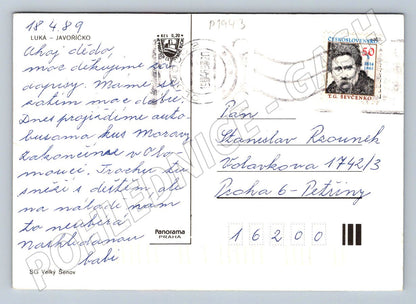 18 4.89
P1943
LUKÁ - JAVOŘÍČKO
KČS 0,20
Ahoj dědo,
moc děkujeme za
dopisy. Máme se
zatím moc dobře.
Dnes projedeme auto-
busama kus Moravy
zakončíme v Olo-
mouci. Trochu to
sněží s deštěm ale
na náladě nám
to neubírá
Nashledanou
Gabi
ČESKOSLOVENSKO
50
T.G. ŠEVČENKO
Pan
Stanislav
Volavkova 1742/3
Praha 6 - Petřiny
16200
Panorama
PRAHA
SG Velký Šenov
POHLEDNICE - GACH